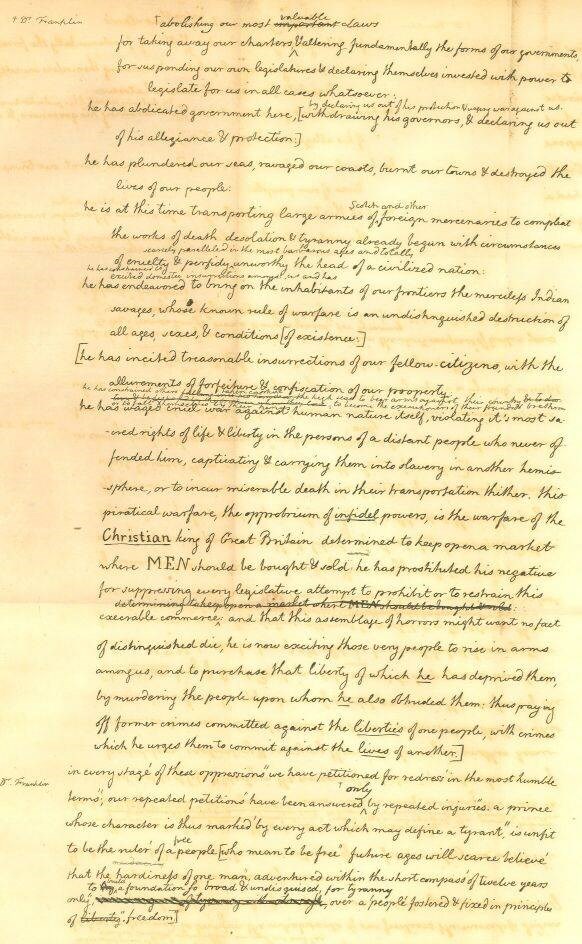 † Dr. Franklin
valuable
⌈abolishing our most important Laws
for taking away our charters, & altering fundamentally the forms of our governments;
for suspending our own legislatures & declaring themselves invested with power to
legislate for us in all cases whatsoever:
by declaring us out of his protection & waging war against us.
he has abdicated government here, [withdrawing his governors, & declaring us out
of his allegiance & protection:]
he has plundered our seas, ravaged our coasts, burnt our towns & destroyed the
lives of our people:
Scotch and other
he is at this time transporting large armies of foreign mercenaries to compleat
the works of death desolation & tyranny already begun with circumstances
scarcely paralleled in the most barbarous ages and totally
of cruelty & perfidy unworthy the head of a civilized nation:
excited domestic insurrections amongst us and has
he has endeavored to bring on the inhabitants of our frontiers the merciless Indian
savages, whose known rule of warfare is an undistinguished destruction of
all ages, sexes, & conditions [of existence:]
[he has incited treasonable insurrections of our fellow-citizens, with the
allurements of forfeiture & confiscation of our property.
he has constrained others taken captives on the high seas to bear arms against their country
to become the executioners of their friends & brethren
he has waged cruel war against human nature itself, violating it's most sa-
-cred rights of life & liberty in the persons of a distant people who never of-
fended him, captivating & carrying them into slavery in another hemis-
-sphere, or to incur miserable death in their transportation thither. this
piratical warfare, the opprobrium of infidel powers, is the warfare of the
Christian king of Great Britain determined to keep open a market
where MEN should be bought & sold he has prostituted his negative
for suppressing every legislative attempt to prohibit or to restrain this
determining to keep open a market where MEN should be bought & sold:
execrable commerce: and that this assemblage of horrors might want no fact
of distinguished die, he is now exciting those very people to rise in arms
among us, and to purchase that liberty of which he has deprived them,
by murdering the people upon whom he also obtruded them: thus paying
off former crimes committed against the liberties of one people, with crimes
which he urges them to commit against the lives of another.]
in every stage of these oppressions we have petitioned for redress in the most humble
Dr. Franklin
only
terms; our repeated petitions have been answered by repeated injuries. a prince
whose character is thus marked by every act which may define a tyrant, is unfit
free
to be the ruler of a people [who mean to be free. future ages will scarce believe
that the hardiness of one man, adventured within the short compass of twelve years
to build a foundation so broad & undisguised, for tyranny
only, over a people fostered & fixed in principles
of liberty freedom]